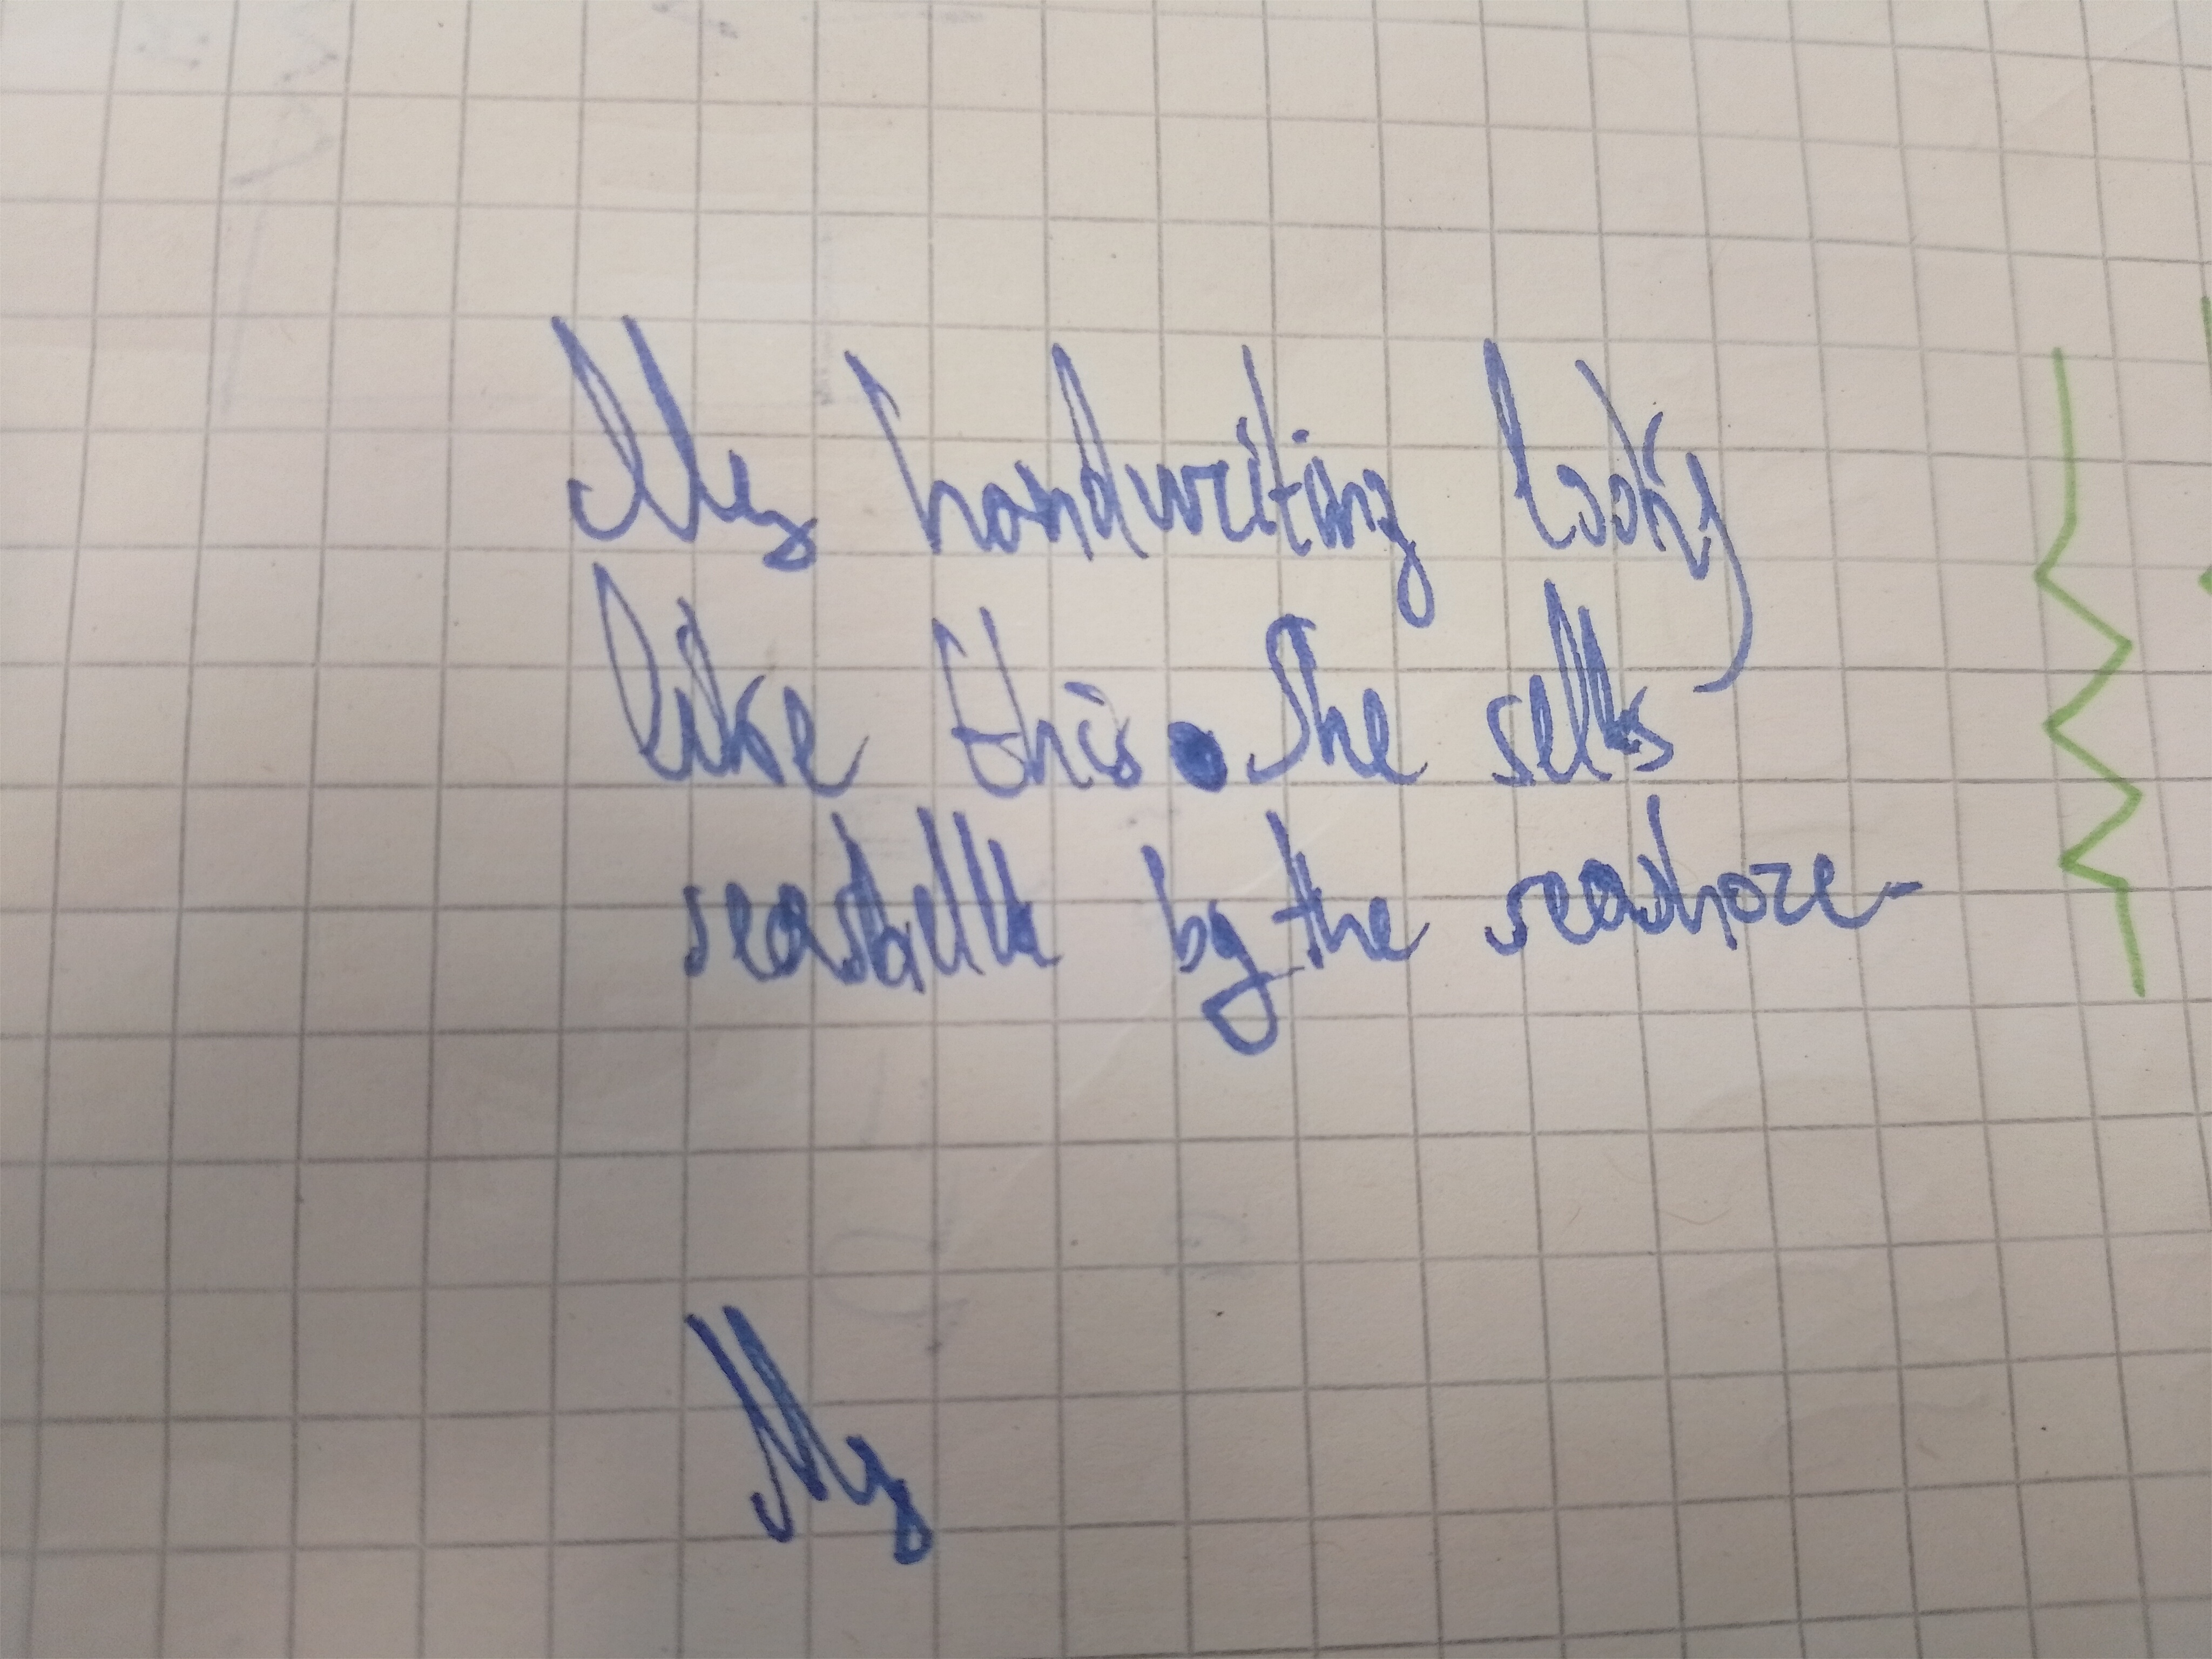 My handwriting looks
like this. She sells
seashells by the seashore
My